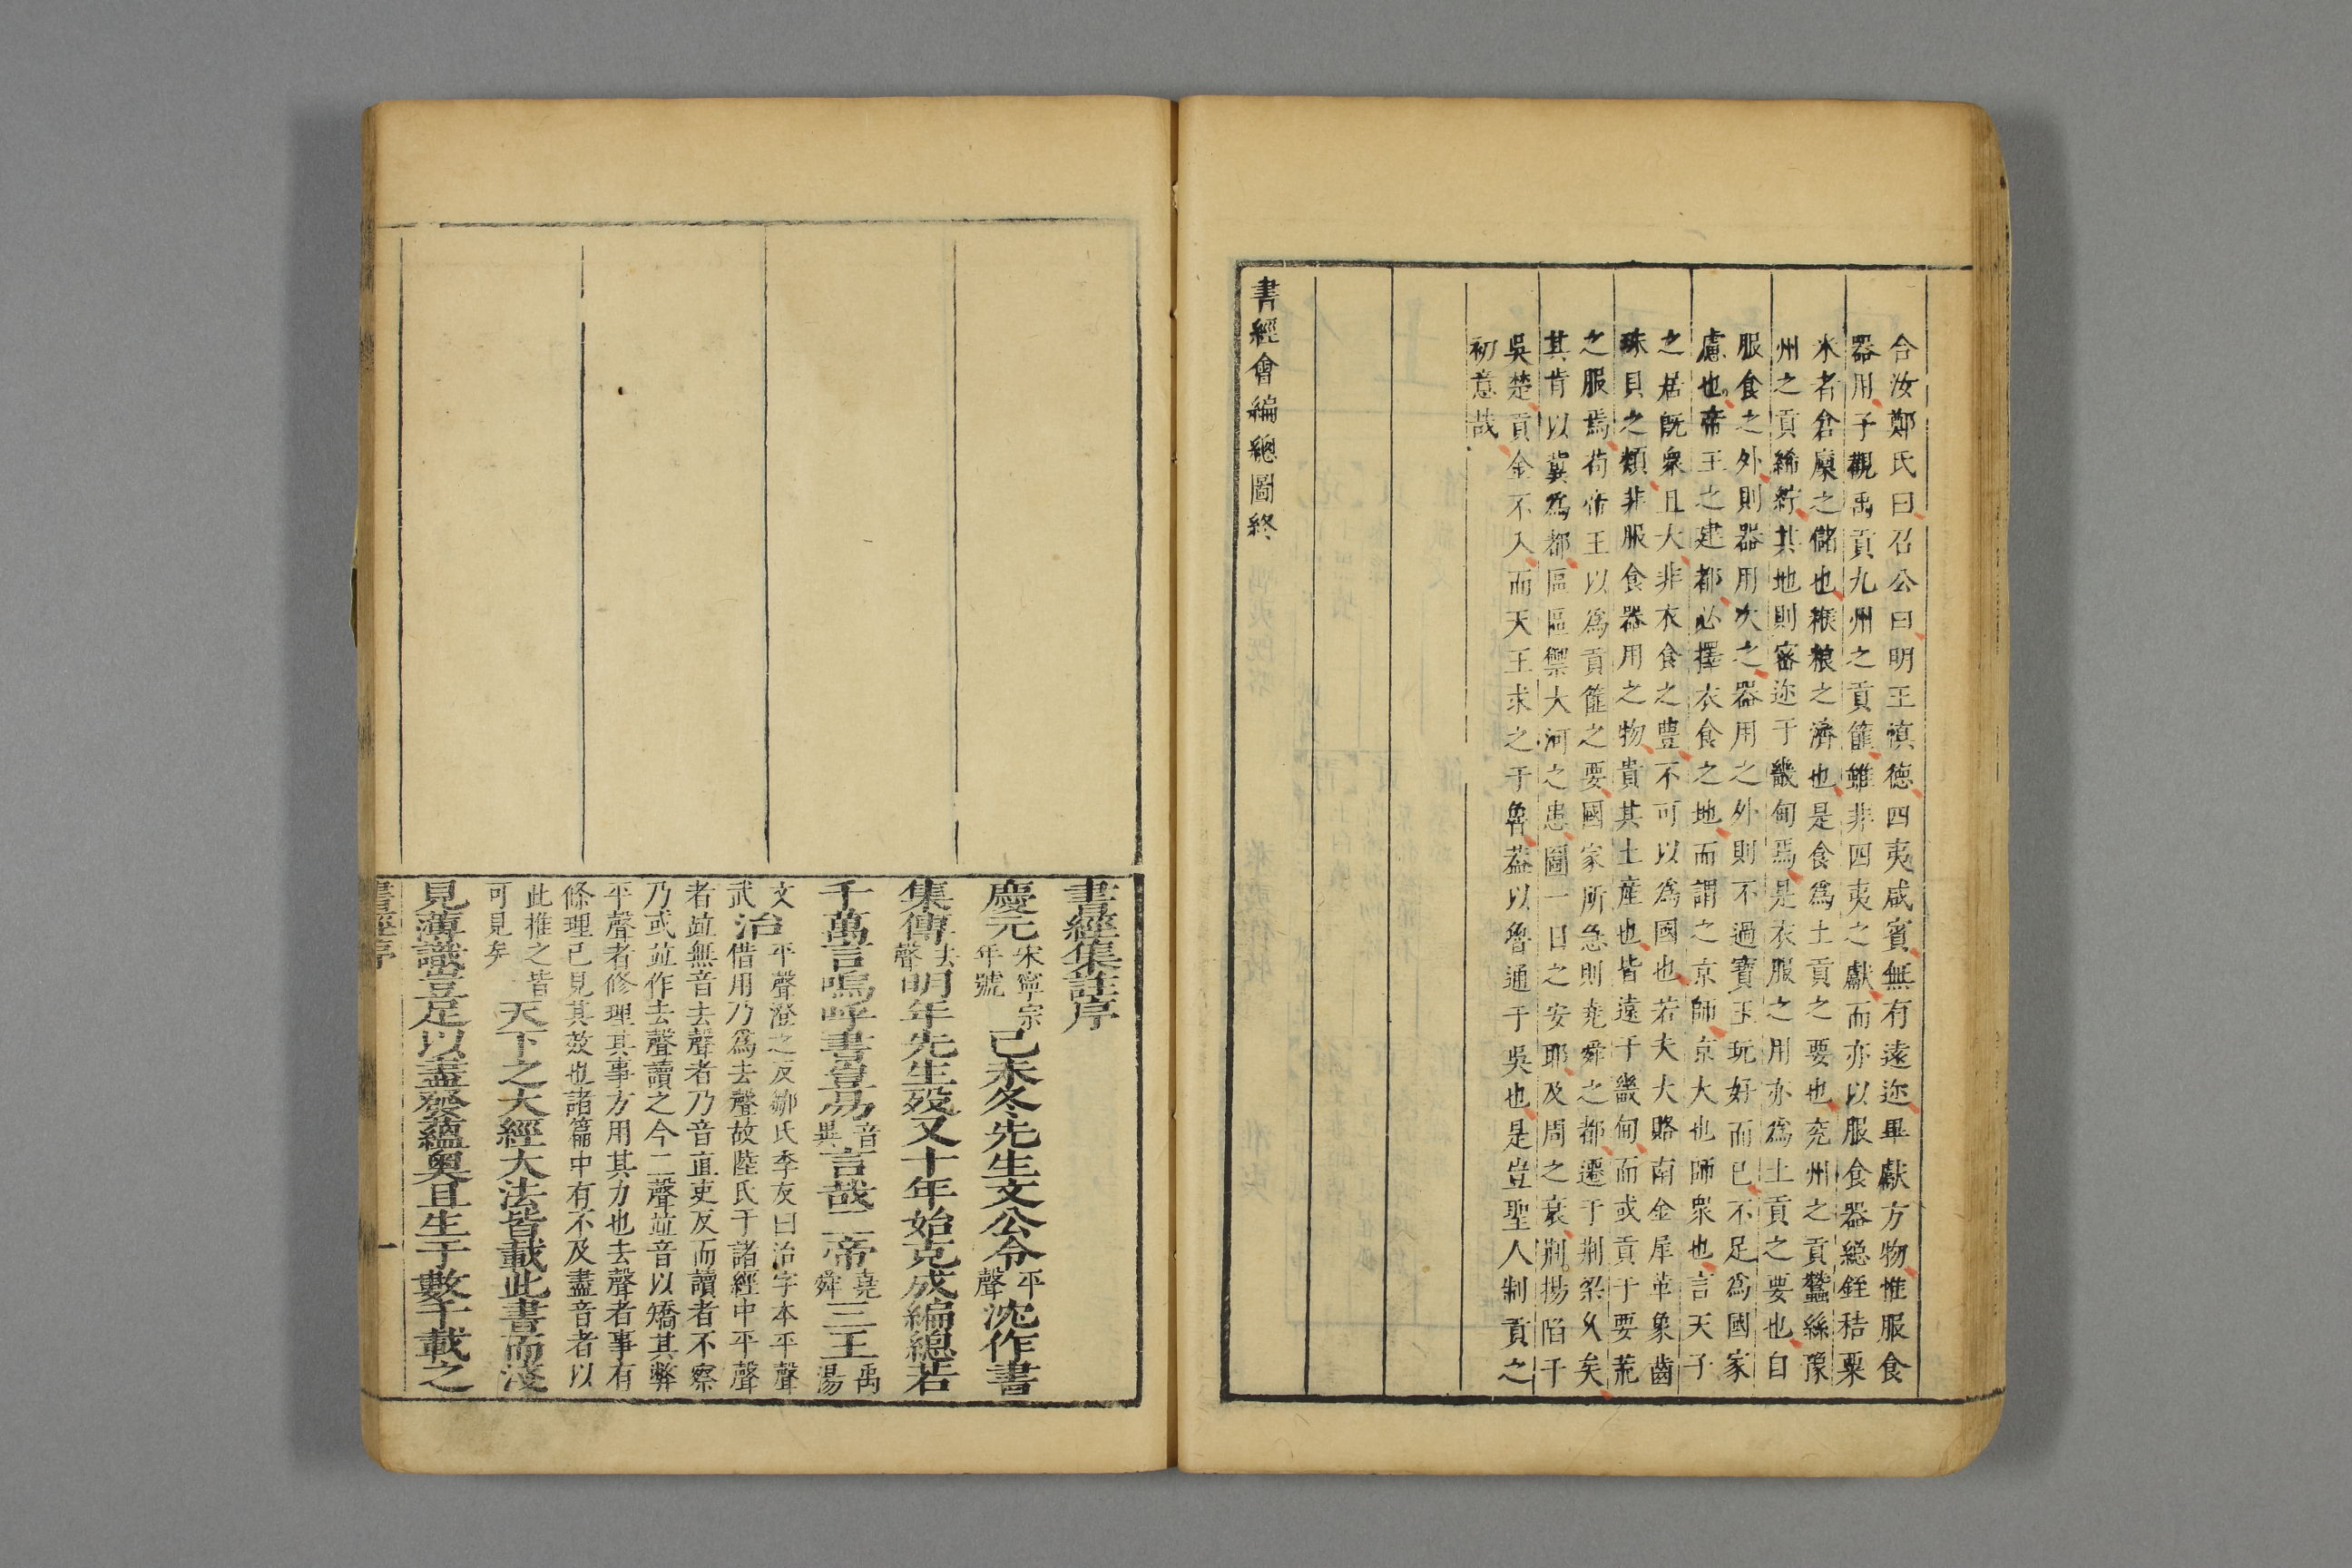 合汝鄭氏曰召公曰明王慎德四夷咸賓無有遠迩畢獻方物惟服食
器用予觀禹貢九州之貢篚雖非四夷之獻而亦以服食器緫銍秸粟
米者倉廩之儲也糇粮之濟也是食為土貢之要也兖州之貢蠶絲豫
州之貢絺紵其地則密迩于畿甸焉是衣服之用亦為土貢之要也自
服食之外則器用次之器用之外則不過寶玉玩好而已不足為國家
慮也帝王之建都必擇衣食之地而謂之京師京大也師衆也言天子
之居既衆且大非衣食之豊不可以為國也若夫大賂南金犀革象齒
珠貝之類非服食器用之物貴其土産也皆遠于畿甸而或貢于要荒
之服焉荷帝王以為貢篚之要國家所急則尭舜之都遷于荆梁久矣
其肯以冀為都區區禦大河之患圖一日之安耶及周之衰荆揚陷于
吳楚貢金不入而天王求之于魯葢以魯通于吳也是豈聖人制貢之
初意哉
書經會編總圖終
書經集註序
慶元宋寧宗年號己未冬先生文公令平聲沈作書
集傳去聲明年先生歿又十年始克成編緫若
千萬言嗚呼書豈易音異言哉二帝堯舜三王禹湯
文武治平聲澄之反鄒氏季友曰治字本平聲
借用乃爲去聲故陸氏于諸經中平聲
者竝無音去聲者乃音直吏反而讀者不察
乃或竝作去聲讀之今二聲竝音以矯其弊
平聲者修理其事方用其力也去聲者事有
條理已見其效也諸篇中有不及盡音者以
此推之皆可見矣天下之大經大法皆載此書而淺
見薄識豈足以盡發蘊奧且生于數千載之
書經序 一